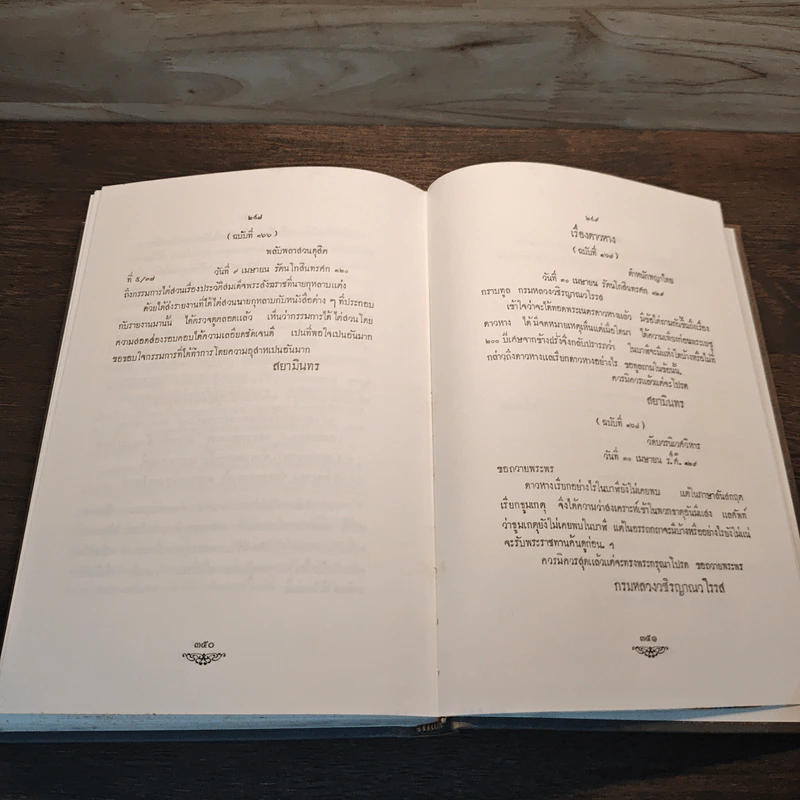 ๒๙๘
( ฉบับที่ ๑๖๖ )
พลับพลาสวนดุสิต
ที่ ๕/๓๗ วันที่ ๙ เมษายน รัตนโกสินทรศก ๑๒๐
ถึงกรรมการไต่สวนเรื่องประวัติสมเด็จพระสังฆราชที่นายกุหลาบแต่ง
ด้วยได้ส่งรายงานที่ได้ไต่สวนนายกุหลาบกับหนังสือต่าง ๆ ที่ประกอบ
กับรายงานมานั้น ได้ตรวจดูตลอดแล้ว เห็นว่ากรรมการได้ ไต่สวนโดย
ความสอดส่องรอบคอบได้ความเลอียดชัดเจนดี เปนที่พอใจเปนอันมาก
ขอขอบใจกรรมการที่ได้ทำการ โดยความอุสาหเปนอันมาก
สยามินทร
๓๕๐
๒๙๙
เรื่องดาวหาง
( ฉบับที่ ๑๖๗ )
ตำหนักพญาไทย
วันที่ ๓๐ เมษายน รัตนโกสินทรศก ๑๒๙
กราบทูล กรมหลวงวชิรญาณวโรรส
เข้าใจว่าจะได้ทอดพระเนตรดาวหางแล้ว มีข้อไต่ถามกันขึ้นถึงเรื่อง
ดาวหาง ได้มีจดหมายเหตุเห็นแต่เมื่อใดมา ได้ความเพียงก่อนพระเยซู
๒๐๐ ปีเศษจากข้างฝรั่งจึงกลับปรารภว่า ในบาฬีจะมีแห่งใดบ้างหรือไม่ที่
กล่าวถึงดาวหางแลเรียกดาวหางอย่างไร ขอทูลถามในข้อนั้น
ควรมิควรแล้วแต่จะโปรด
สยามินทร
( ฉบับที่ ๑๖๘ )
วัดบวรนิเวศวิหาร
วันที่ ๓๐ เมษายน ร,ศ, ๑๒๙
ขอถวายพระพร
ดาวหางเรียกอย่างไรในบาฬียังไม่เคยพบ แต่ในภาษาสันสกฤต
เรียกธูมเกตุ จึงได้ความว่าสงเคราะห์เข้าในพวกธาตุอันมีแสง แลศัพท์
ว่าธูมเกตุยังไม่เคยพบในบาฬี แต่ในอรรถกถาจะมีบ้างหรืออย่างไรยังไม่แน่
จะรับพระราชทานค้นดูก่อน ฯ
ควรมิควรสุดแล้วแต่จะทรงพระกรุณาโปรด ขอถวายพระพร
กรมหลวงวชิรญาณวโรรส
๓๕๑